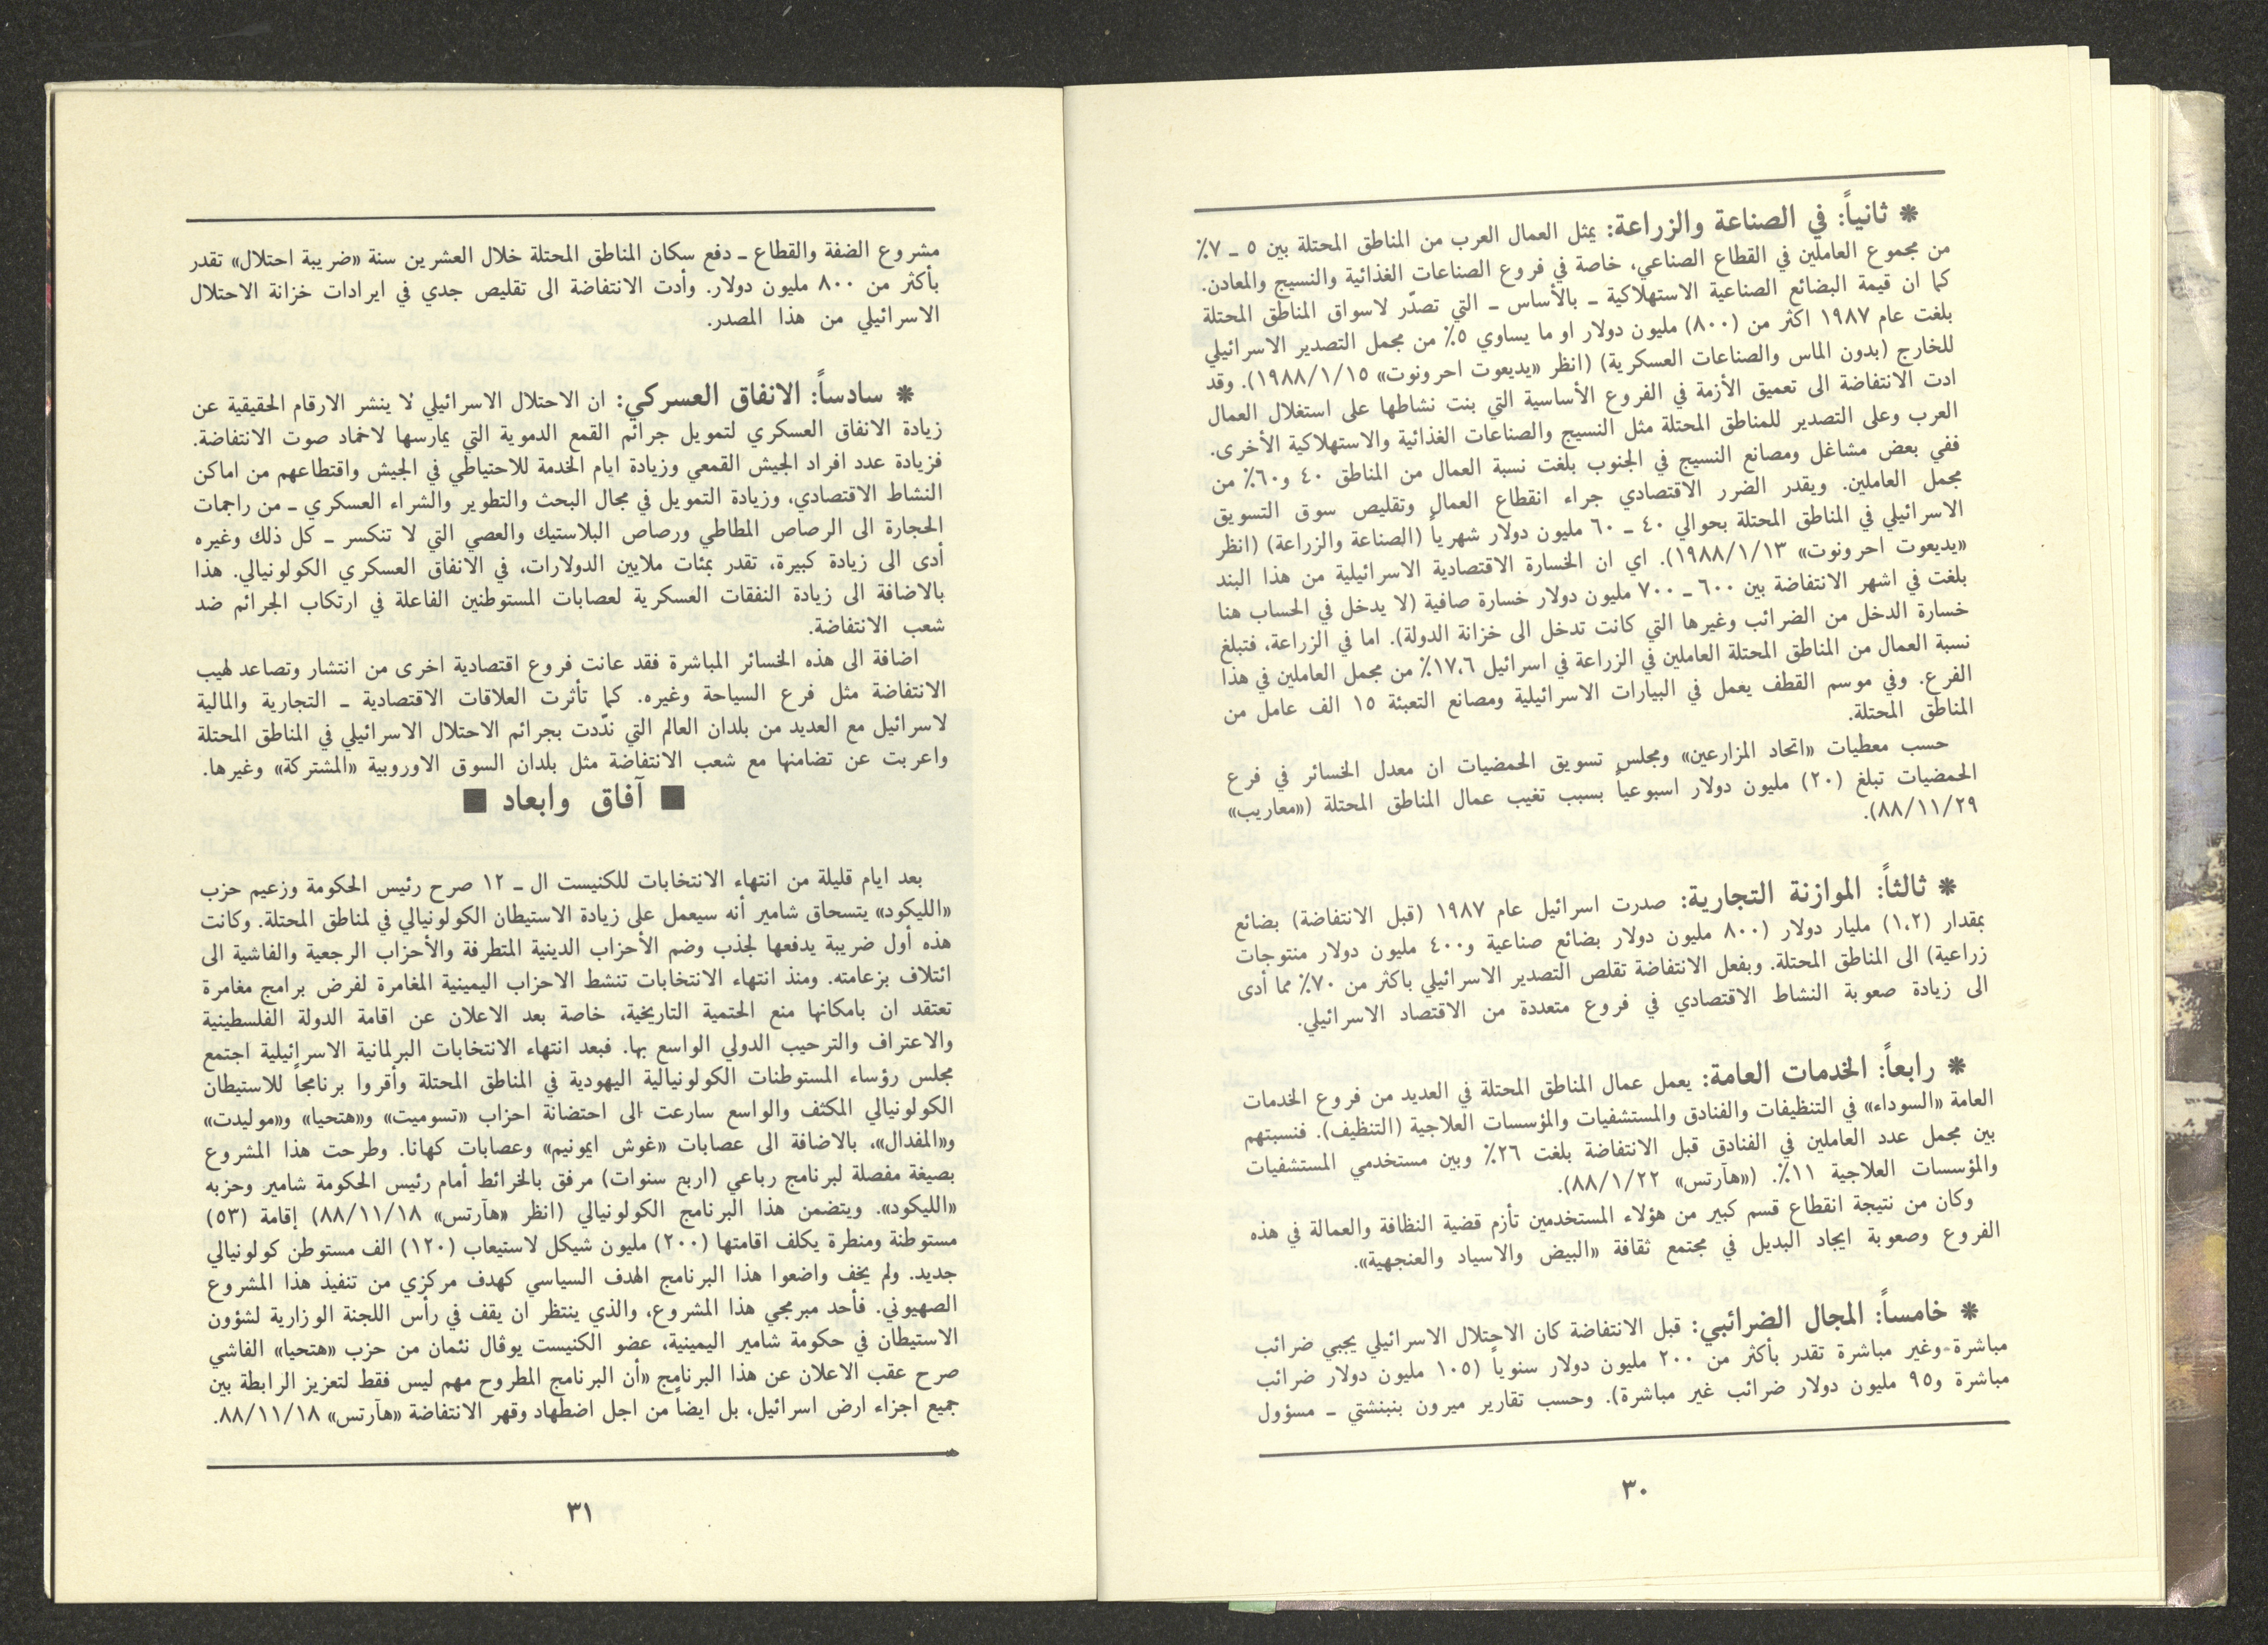 * ثانياً: في الصناعة والزراعة: يمثل العمال العرب من المناطق المحتلة بين ٥ ـ ٧٪
من مجموع العاملين في القطاع الصناعي، خاصة في فروع الصناعات الغذائية والنسيج والمعادن.
كما ان قيمة البضائع الصناعية الاستهلاكية ـ بالأساس ـ التي تصدّر لاسواق المناطق المحتلة
بلغت عام ١٩٨٧ اكثر من (٨٠٠) مليون دولار او ما يساوي ٥٪ من مجمل التصدير الاسرائيلي
للخارج (بدون الماس والصناعات العسكرية) (انظر «يديعوت احرونوت» ١٩٨٨/١/١٥). وقد
ادت الانتفاضة الى تعميق الأزمة في الفروع الأساسية التي بنت نشاطها على استغلال العمال
العرب وعلى التصدير للمناطق المحتلة مثل النسيج والصناعات الغذائية والاستهلاكية الأخرى.
ففي بعض مشاغل ومصانع النسيج في الجنوب بلغت نسبة العمال من المناطق ٤٠ و٦٠٪ من
مجمل العاملين. ويقدر الضرر الاقتصادي جراء انقطاع العمال وتقليص سوق التسويق
الاسرائيلي في المناطق المحتلة بحوالي ٤٠ ـ ٦٠ مليون دولار شهرياً (الصناعة والزراعة) (انظر
«يديعوت احرونوت» ١٩٨٨/١/١٣). اي ان الخسارة الاقتصادية الاسرائيلية من هذا البند
بلغت في اشهر الانتفاضة بين ٦٠٠ ـ ٧٠٠ مليون دولار خسارة صافية (لا يدخل في الحساب هنا
خسارة الدخل من الضرائب وغيرها التي كانت تدخل الى خزانة الدولة). اما في الزراعة، فتبلغ
نسبة العمال من المناطق المحتلة العاملين في الزراعة في اسرائيل ١٧،٦٪ من مجمل العاملين في هذا
الفرع. وفي موسم القطف يعمل في البيارات الاسرائيلية ومصانع التعبئة ١٥ الف عامل من
المناطق المحتلة.
حسب معطيات «اتحاد المزارعين» ومجلس تسويق الحمضيات ان معدل الخسائر في فرع
الحمضيات تبلغ (٢٠) مليون دولار اسبوعياً بسبب تغيب عمال المناطق المحتلة («معاريب»
٨٨/١١/٢٩).
* ثالثاً: الموازنة التجارية: صدرت اسرائيل عام ١٩٨٧ (قبل الانتفاضة) بضائع
بمقدار (١،٢) مليار دولار (٨٠٠ مليون دولار بضائع صناعية و٤٠٠ مليون دولار منتوجات
زراعية) الى المناطق المحتلة. وبفعل الانتفاضة تقلص التصدير الاسرائيلي باكثر من ٧٠٪ مما أدى
الى زيادة صعوبة النشاط الاقتصادي في فروع متعددة من الاقتصاد الاسرائيلي.
* رابعاً: الخدمات العامة: يعمل عمال المناطق المحتلة في العديد من فروع الخدمات
العامة «السوداء» في التنظيفات والفنادق والمستشفيات والمؤسسات العلاجية (التنظيف). فنسبتهم
بين مجمل عدد العاملين في الفنادق قبل الانتفاضة بلغت ٢٦٪ وبين مستخدمي المستشفيات
والمؤسسات العلاجية ١١٪. («هآرتس» ٨٨/١/٢٢).
وكان من نتيجة انقطاع قسم كبير من هؤلاء المستخدمين تأزم قضية النظافة والعمالة في هذه
الفروع وصعوبة ايجاد البديل في مجتمع ثقافة «البيض والاسياد والعنجهية».
* خامساً: المجال الضرائبي: قبل الانتفاضة كان الاحتلال الاسرائيلي يجبي ضرائب
مباشرة وغير مباشرة تقدر بأكثر من ٢٠٠ مليون دولار سنوياً (١٠٥ مليون دولار ضرائب
مباشرة و٩٥ مليون دولار ضرائب غير مباشرة). وحسب تقارير ميرون بنبنشتي ـ مسؤول
٣٠
مشروع الضفة والقطاع ـ دفع سكان المناطق المحتلة خلال العشرين سنة «ضريبة احتلال» تقدر
بأكثر من ٨٠٠ مليون دولار. وأدت الانتفاضة الى تقليص جدي في ايرادات خزانة الاحتلال
الاسرائيلي من هذا المصدر.
* سادساً: الانفاق العسركي: ان الاحتلال الاسرائيلي لا ينشر الارقام الحقيقية عن
زيادة الانفاق العسكري لتمويل جرائم القمع الدموية التي يمارسها لاخماد صوت الانتفاضة.
فزيادة عدد افراد الجيش القمعي وزيادة ايام الخدمة للاحتياطي في الجيش واقتطاعهم من اماكن
النشاط الاقتصادي، وزيادة التمويل في مجال البحث والتطوير والشراء العسكري ـ من راجمات
الحجارة الى الرصاص المطاطي ورصاص البلاستيك والعصي التي لا تنكسر ـ كل ذلك وغيره
أدى الى زيادة كبيرة، تقدر بمئات ملايين الدولارات، في الانفاق العسكري الكولونيالي. هذا
بالاضافة الى زيادة النفقات العسكرية لعصابات المستوطنين الفاعلة في ارتكاب الجرائم ضد
شعب الانتفاضة.
اضافة الى هذه الخسائر المباشرة فقد عانت فروع اقتصادية اخرى من انتشار وتصاعد لهيب
الانتفاضة مثل فرع السياحة وغيره. كما تأثرت العلاقات الاقتصادية ـ التجارية والمالية
لاسرائيل مع العديد من بلدان العالم التي ندّدت بجرائم الاحتلال الاسرائيلي في المناطق المحتلة
واعربت عن تضامنها مع شعب الانتفاضة مثل بلدان السوق الاوروبية «المشتركة» وغيرها.
■ آفاق وابعاد ■
بعد ايام قليلة من انتهاء الانتخابات للكنيست ال ـ ١٢ صرح رئيس الحكومة وزعيم حزب
«الليكود» يتسحاق شامير أنه سيعمل على زيادة الاستيطان الكولونيالي في لمناطق المحتلة. وكانت
هذه أول ضريبة يدفعها لجذب وضم الأحزاب الدينية المتطرفة والأحزاب الرجعية والفاشية الى
ائتلاف بزعامته. ومنذ انتهاء الانتخابات تنشط الاحزاب اليمينية المغامرة لفرض برامج مغامرة
تعتقد ان بامكانها منع الحتمية التاريخية، خاصة بعد الاعلان عن اقامة الدولة الفلسطينية
والاعتراف والترحيب الدولي الواسع بها. فبعد انتهاء الانتخابات البرلمانية الاسرائيلية اجتمع
مجلس رؤساء المستوطنات الكولونيالية اليهودية في المناطق المحتلة وأقروا برنامجاً للاستيطان
الكولونيالي المكثف والواسع سارعت الى احتضانة احزاب «تسوميت» و«هتحيا» و«موليدت»
و«المفدال»، بالاضافة الى عصابات «غوش ايمونيم» وعصابات كهانا. وطرحت هذا المشروع
بصيغة مفصلة لبرنامج رباعي (اربع سنوات) مرفق بالخرائط أمام رئيس الحكومة شامير وحزبه
«الليكود». ويتضمن هذا البرنامج الكولونيالي (انظر «هآرتس» ٨٨/١١/١٨) إقامة (٥٣)
مستوطنة ومنطرة يكلف اقامتها (٢٠٠) مليون شيكل لاستيعاب (١٢٠) الف مستوطن كولونيالي
جديد. ولم يخف واضعوا هذا البرنامج الهدف السياسي كهدف مركزي من تنفيذ هذا المشروع
الصهيوني. فأحد مبرمجي هذا المشروع، والذي ينتظر ان يقف في رأس اللجنة الوزارية لشؤون
الاستيطان في حكومة شامير اليمينية، عضو الكنيست يوڤال نئمان من حزب «هتحيا» الفاشي
صرح عقب الاعلان عن هذا البرنامج «أن البرنامج المطروح مهم ليس فقط لتعزيز الرابطة بين
جميع اجزاء ارض اسرائيل، بل ايضاً من اجل اضطهاد وقهر الانتفاضة «هآرتس» ٨٨/١١/١٨.
٣١